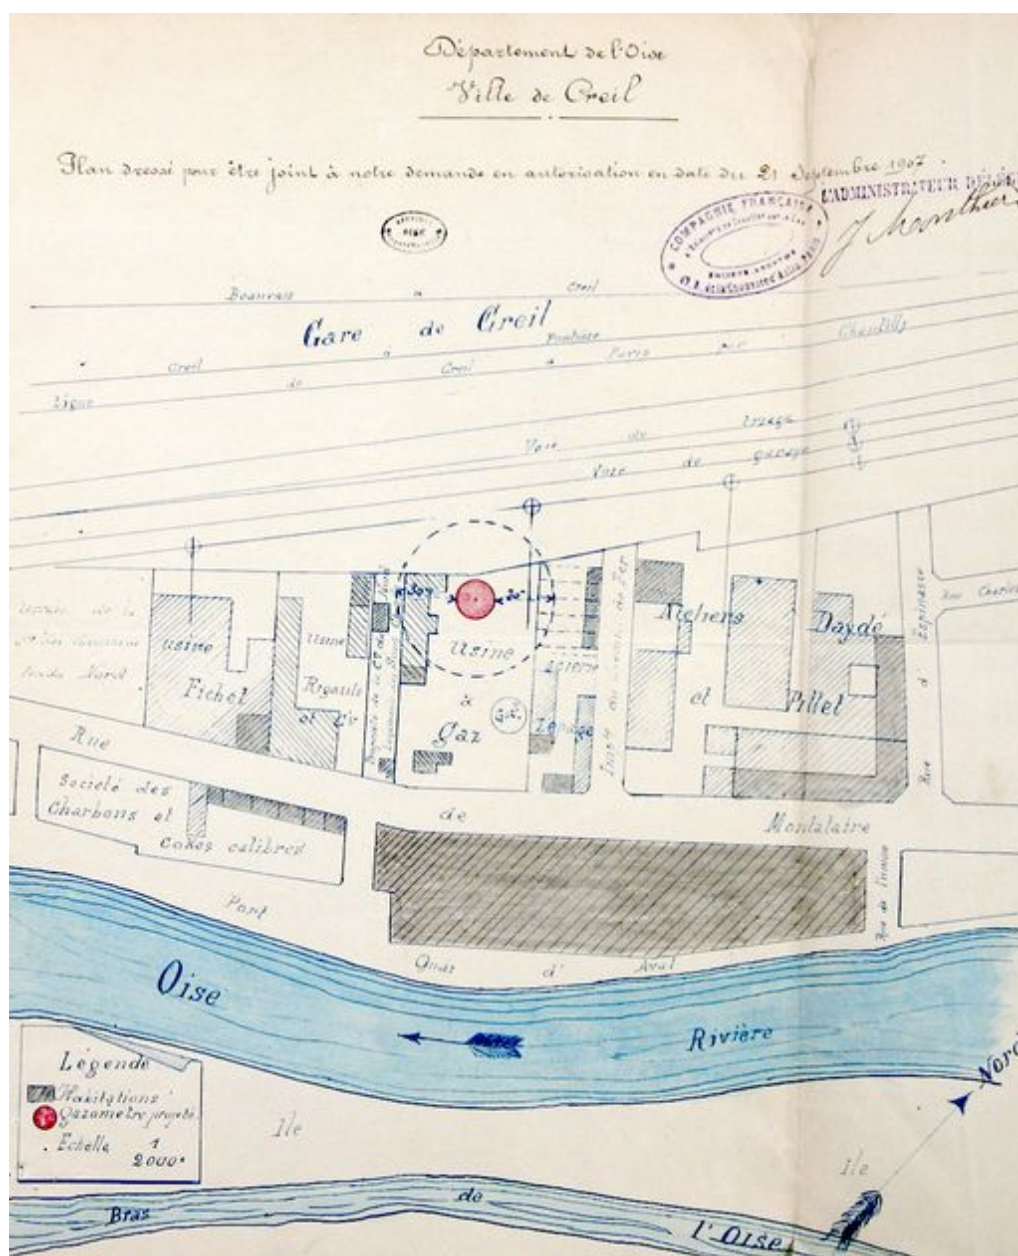 Département de l'Oise
Ville de Creil
Plan dressé pour être joint à notre demande en autorisation en date du 21 Septembre 1907.
L'ADMINISTRATEUR DÉLÉG
COMPAGNIE FRANÇAISE
SOCIÉTÉ ANONYME
Beauvais à Creil
Gare de Creil
Creil à Pontoise
Ligne de Creil à Paris par Chantilly
Voie de
Voie de garage
Usine
Fichet
Usine
Rigault
et Cie
Usine
à
Gaz
Ateliers
et
Daydé
Pillet
Rue
de
Montataire
Rue d'Espinasse
Rue Charles
Société des
Charbons et
Cokes calibrés
Port
Quai d'Aval
Rue de l'
Oise
Rivière
Nord
Légende
Habitations
Gazomètre projeté
Echelle 1
2000e
Ile
Ile
Bras
de
l'Oise